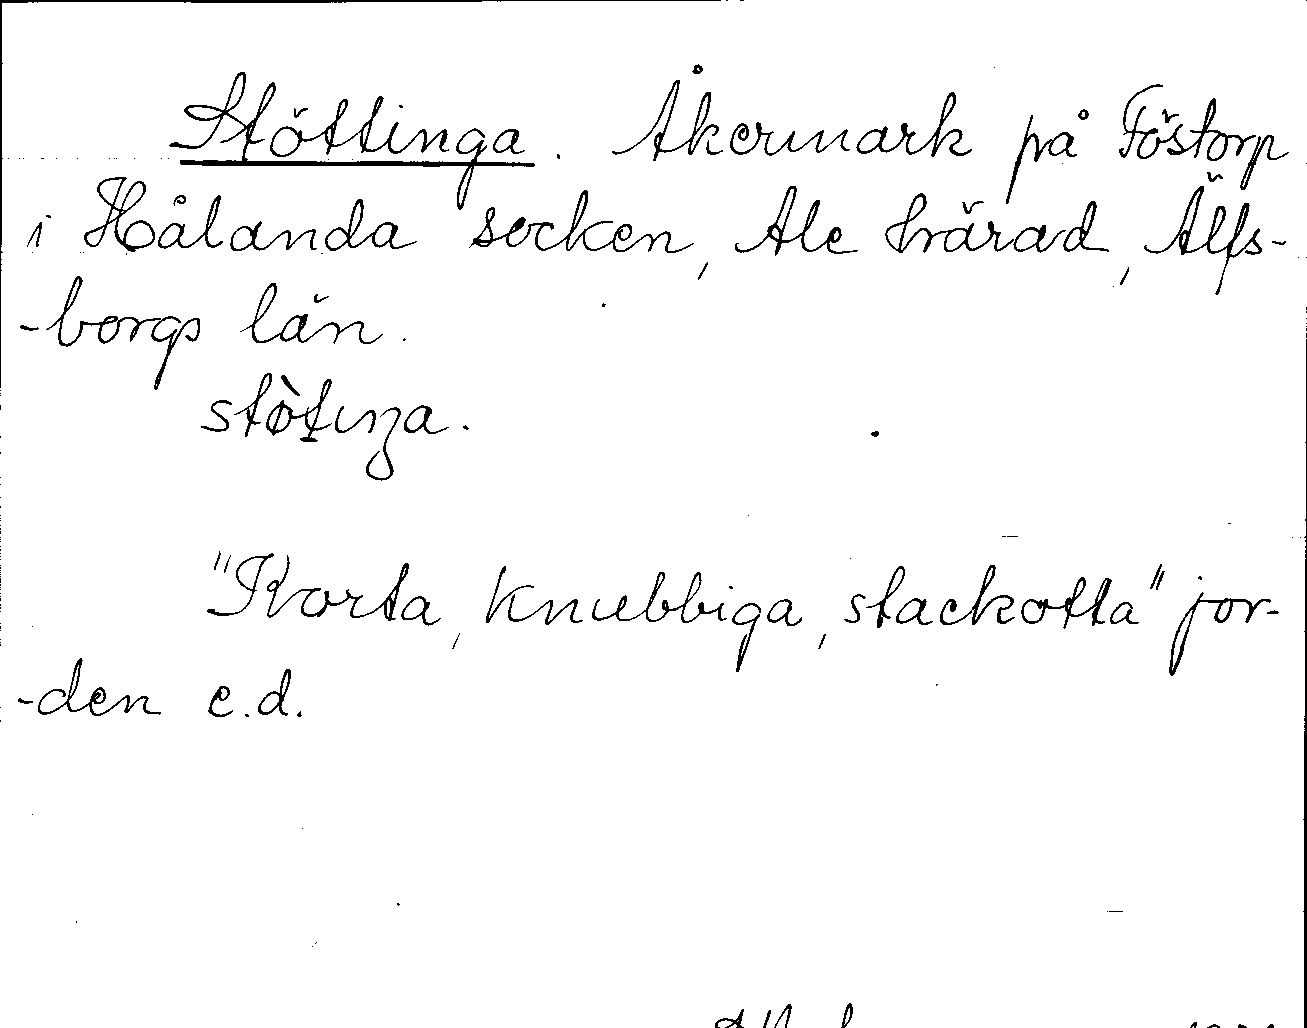 Stöttinga. Åkermark på Föstorp
i Hålanda socken, Ale härad, Älfs-
-borgs län.
stòtiŋa.
"Korta, knubbiga, stackotta" jor-
-den e.d.